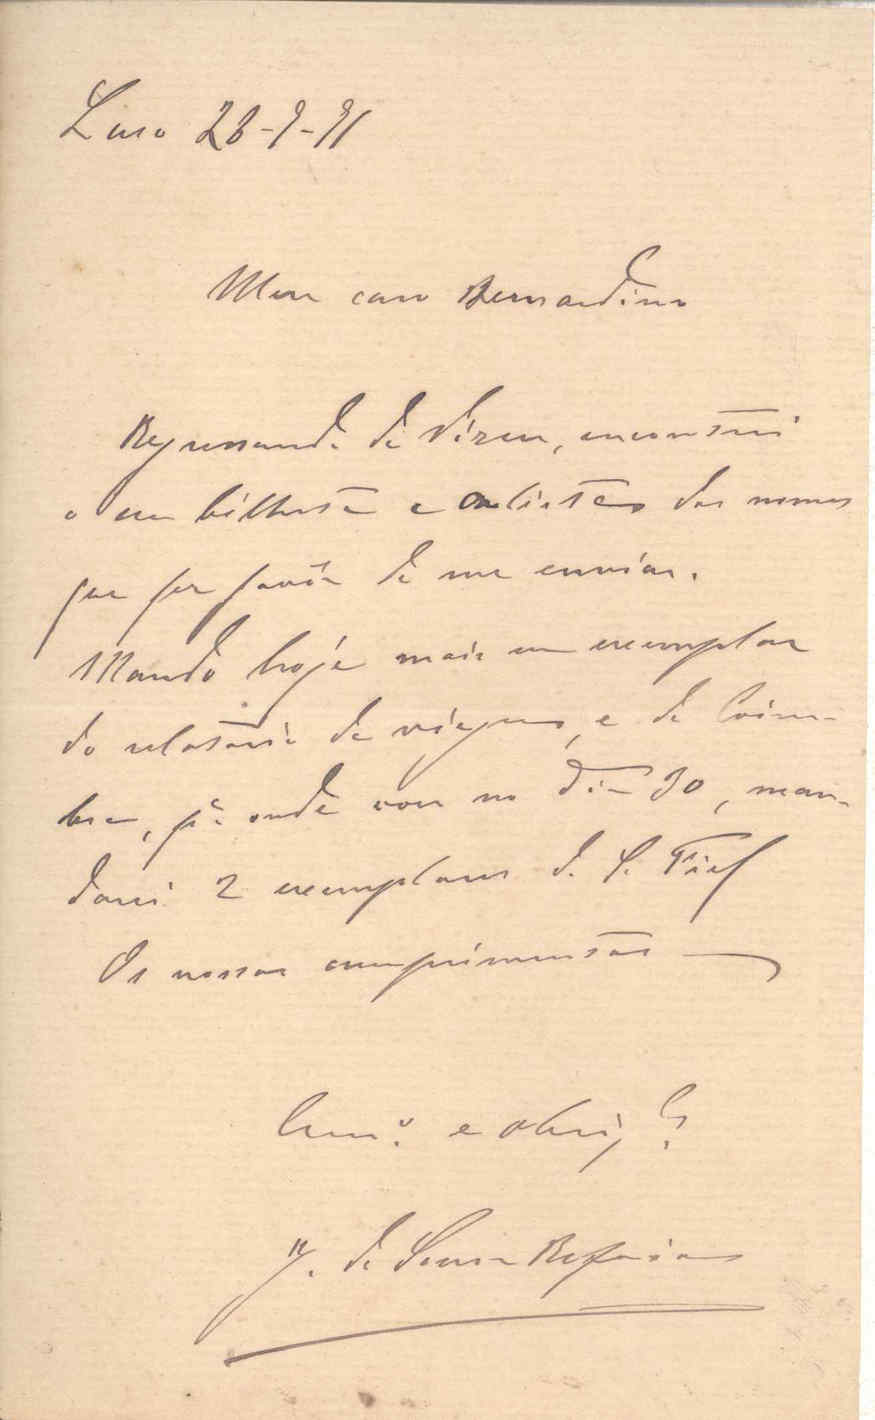 Luso 28-9-91
Meu caro Bernardino
Regressando de Vizeu, encontrei
o seu bilhete e a lista dos nomes
que fez favôr de me enviar.
Mando hoje mais um exemplar
do relatorio da viagem, e de Coim-
bra, pª onde vou no dia 30, man-
darei 2 exemplares de S. Fiel
Os nossos cumprimentos
Amº. e obrigº
J. de Sousa Refoios